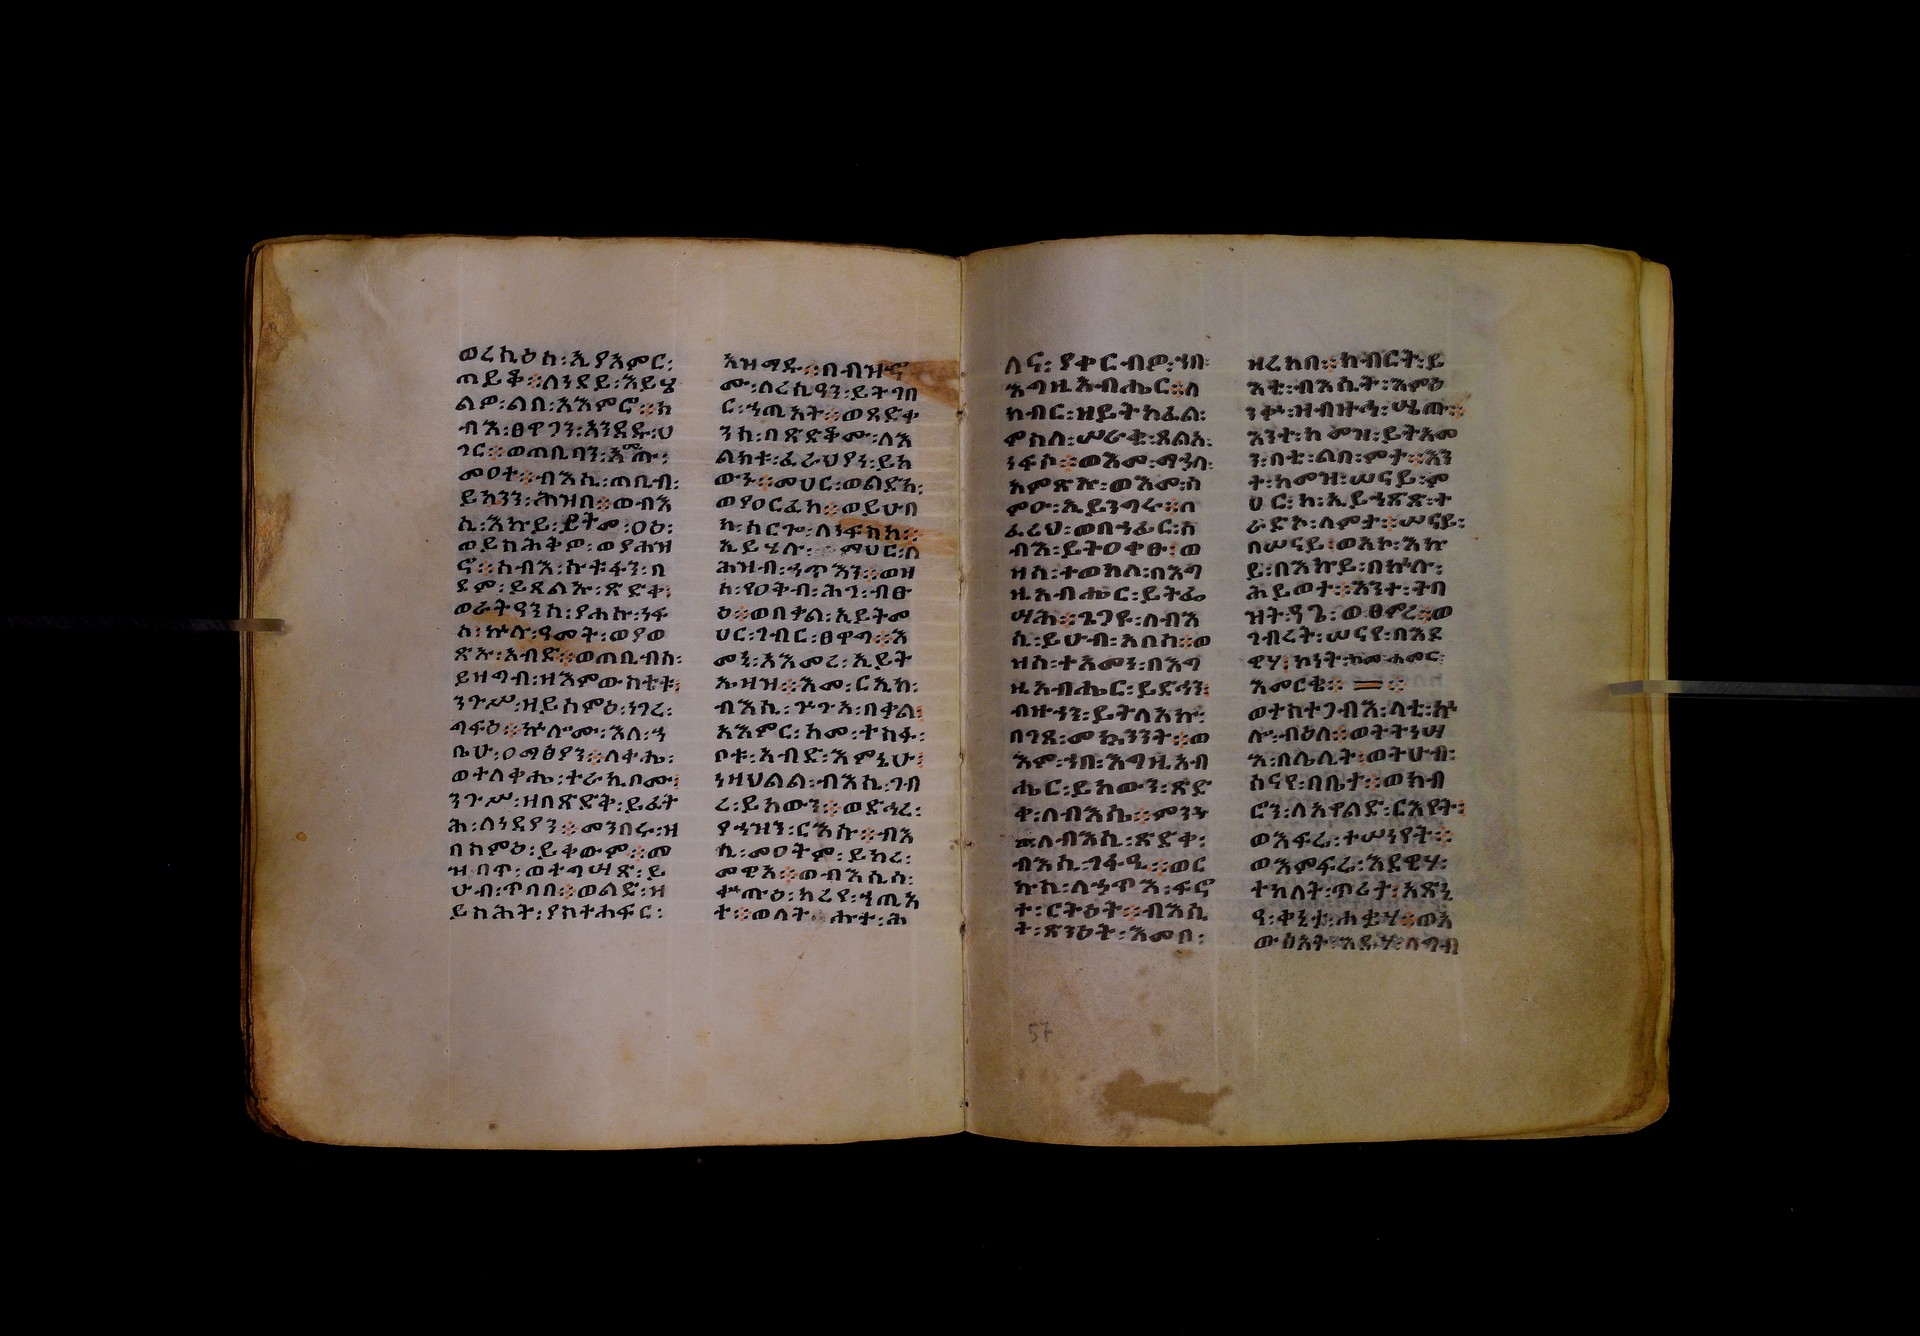 ወረኪዕከ፡ኢያእምር፡
ጠይቅ፡፡ለነደይ፡እይሄ
ልዎ፡ልበ፡አእምሮ፡፡ከ
ብእ፡ፀዋጋን፡እንደዱ፡ሀ
ገር፡፡ወጠቢባን፡
መዐተ፡፡ብእሲ፡ጠቢብ፡
ይኴንን፡ሕዝበ፡፡ወብእ
ሲ፡እኩይ፡ይትመ፡ዐዕ፡
ወይስሕቅዎ፡ወያሕዝ
ኖ፡፡ሰብእ፡ኩቱፋን፡በ
ደም፡ይጸልኡ፡ጻድቀ፡
ወራትዓንሰ፡የሐሡ፡ነፍ
ሶ፡ኵሉ፡ዓመት፡ወያወ
ጽኡ፡አብድ፡፡ወጠቢብሰ፡
ይዘግብ፡ዘእምውስቴቱ፡
ንጉሥ፡ዘይሰምዕ፡ነገረ፡
ሐፍዕ፡፡ኵሎሙ፡እለ፡ኀ
ቤሁ፡ዐማፅያን፡፡ለቀሔ፡
ወተለቀሔ፡ተራኪቦሙ፡
ንጉሥ፡ዘበጽድቅ፡ይፈት
ሕ፡ለነዳያን፡፡መንበሩ፡ዝ
በስምዕ፡ይቀውም፡፡መ
ዝበጥ፡ወተግሣጽ፡ይ
ሁብ፡ጥበበ፡፡ወልድ፡ዘ
ይስሕት፡ያስተሐፍር፡
አዝማዱ፡፡በብዝኖ
ሙ፡ለረሲዓን፡ይትገበ
ር፡ኀጢአት፡፡ወጻድቀ
ንሰ፡በጽድቆሙ፡ለእ
ልክቱ፡ፈራህያን፡ይከ
ውን፡፡መሀር፡ወልድከ፡
ወያዐርፈከ፡፡ወይሁበ
ከ፡ሰርጐ፡ለነፍስከ፡፡
ኢይሄሉ፡ምህር፡ለ
ሕዝብ፡ኀጥእን፡፡ወዝ
ሰ፡የዐቅብ፡ሕገ፡ብፁ
ዕ፡፡ወበቃል፡ኢይትመ
ሀር፡ገብር፡ፀዋግ፡፡እ
መኒ፡አእመረ፡ኢይት
ኤዘዝ፡፡እመ፡ርኢከ፡
ብእሲ፡ጕጉአ፡በቃል፡
አእምር፡ከመ፡ተስፋ፡
ቦቱ፡አብድ፡እምኔሁ፡
ነዛህልል፡ብእሲ፡ገብ
ረ፡ይከውን፡፡ወድኃረ፡
የኀዝን፡ርእሱ፡፡ብእ
ሲ፡መዐትም፡ይከረ፡
መዊእ፡፡ወብእሲሰ፡
ቍጡዕ፡ከረየ፡ኀጢአ
ተ፡፡ወለት፡ሑተ፡ሕ
ለና፡ያቀርብዎ፡ኀበ፡
እግዚአብሔር፡፡ለ
ክብር፡ዘይትከፈል፡
ምስለ፡ሠራቂ፡ጸልአ፡
ነፍሶ፡፡ወእመ፡ማኅለ፡
አምጽኡ፡ወእመ፡ሰ
ምዑ፡ኢይነግሩ፡፡ለ
ፈረሀ፡ወበኀፊር፡ሰ
ብእ፡ይትዐቀፁ፡ወ
ዘሰ፡ተወከለ፡በእግ
ዚአብሔር፡ይትፌ
ሣሕ፡፡ጌጋየ፡ለብእ
ሲ፡ይሁብ፡አበሰ፡፡ወ
ዘሰ፡ተአመነ፡በእግ
ዚአብሔር፡ይድኅን፡
ብዙኃን፡ይትለአኩ፡
በገጸ፡መኳንንት፡፡ወ
እም፡ኀበ፡እግዚአብ
ሔር፡ይከውን፡ጽድ
ቀ፡ለብእሲ፡፡ምንን
ለብእሲ፡ጽድቀ፡
ብእሲ፡ገፋዒ፡፡ወር
ኩስ፡ለኀጥእ፡ፍኖ
ተ፡ርትዕት፡፡ብእሲ
ተ፡ጽንዕት፡እመቦ፡
ዘረከበ፡፡ከብርት፡ይ
እቲ፡ብእሲት፡እምዕ
ንቍ፡ዝብዙኅ፡ሤጡ፡፡
እንተ፡ከመዝ፡ይትአመ
ን፡በቲ፡ልበ፡ምት፡፡እን
ተ፡ከመዝ፡ሠናይ፡ም
ህር፡ከ፡ኢይኀጽጽ፡ት
ራድኦ፡ለምት፡፡ሠናይ፡
በሠናይ፡ወአኮ፡እኩ
ይ፡በእኩይ፡በኵሉ፡
ሕይወት፡፡እንተ፡ትበ
ዝት፡ዓጌ፡ወፀምረ፡፡ወ
ገብረት፡ሠናየ፡በእደ
ዊሃ፡ኮነት፡ከመ፡ሐመር፡
እመርቂ፡፡ ፡፡
ወተከተጋብእ፡ላቲ፡ኵ
ሎ፡ብዕለ፡፡ወትትነሣ
እ፡በሌሊት፡ወትሁብ፡
ሰናየ፡በቤተ፡፡ወክብ
ሮን፡ለአዋልድ፡ርእየት፡
ወእፍሬ፡ተሠነየት፡፡
ወእምፍሬ፡እደዊሃ፡
ተከለት፡ጥሪት፡አጽኒ
ዓ፡ቀኒቱ፡ሐቂሃ፡፡ወአ
ውፅአት፡እዴሃ፡ለግብ
57